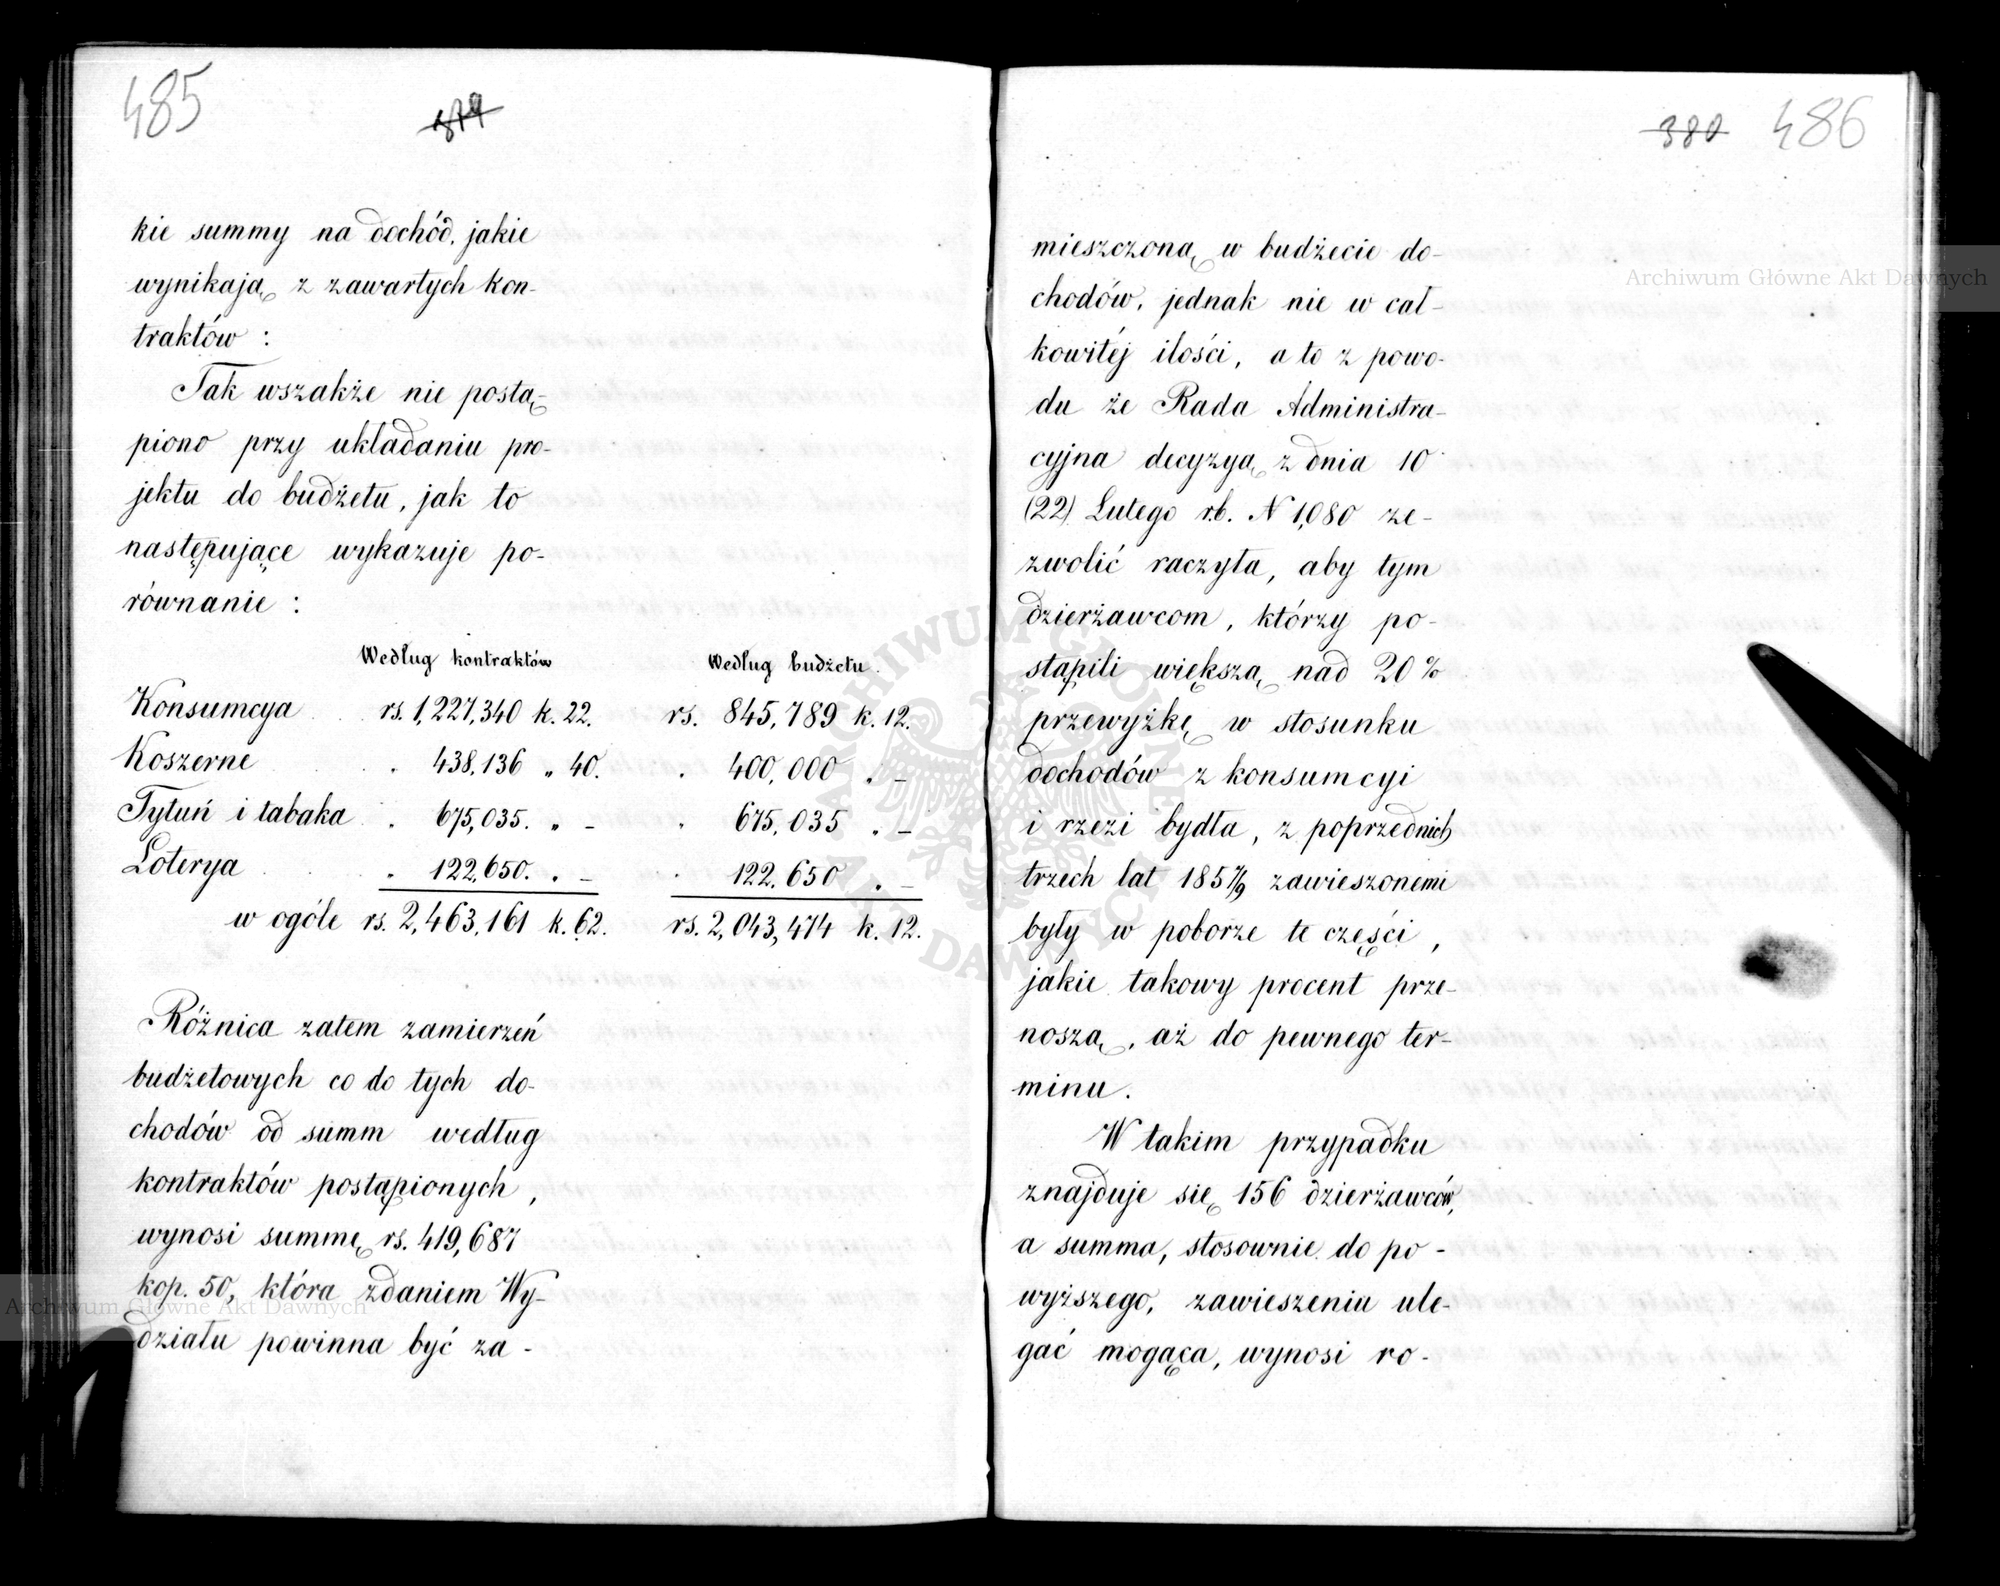 485
379
kie summy na dochód, jakie
wynikają z zawartych kon-
traktów :
Tak wszakże nie postą-
piono przy układaniu pro-
jektu do budżetu, jak to
następujące wykazuje po-
równanie :
Według kontraktów Według budżetu.
Konsumcya rs. 1,227,340 k. 22. rs. 845,789 k. 12.
Koszerne " 438,136 " 40. " 400,000 " –
Tytuń i tabaka " 675,035. " – " 675,035 " –
Loterya " 122,650. " – " 122,650 " –
w ogóle rs. 2,463,161 k. 62. rs. 2,043,474 k. 12.
Różnica zatem zamierzeń
budżetowych co do tych do-
chodów od summ według
kontraktów postąpionych,
wynosi summę rs. 419,687
kop. 50, która zdaniem Wy-
działu powinna być za-
Archiwum Główne Akt Dawnych
380 486
mieszczoną w budżecie do-
chodów, jednak nie w cał-
kowitéj ilości, a to z powo-
du że Rada Administra-
cyjna decyzyą z dnia 10
(22) Lutego r.b. N 1,080 ze-
zwolić raczyła, aby tym
dzierżawcom, którzy po-
stąpili większą nad 20%
przewyżkę w stosunku
dochodów z konsumcyi
i rzezi bydła, z poprzednich
trzech lat 1857/9 zawieszonemi
były w poborze te części,
jakie takowy procent prze-
noszą, aż do pewnego ter-
minu.
W takim przypadku
znajduje się 156 dzierżawców,
a summa, stosownie do po-
wyższego, zawieszenia ule-
gać mogąca, wynosi ro-
Archiwum Główne Akt Dawnych
ARCHIWUM GŁÓWNE AKT DAWNYCH